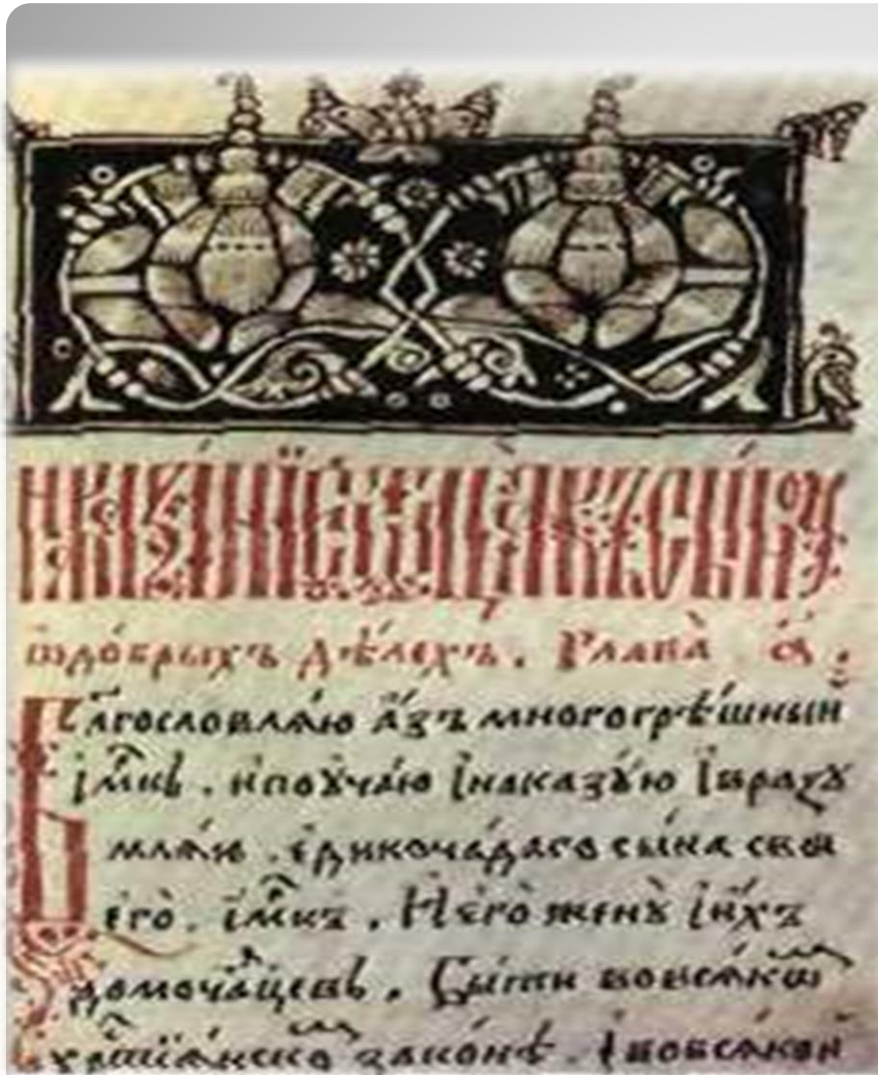 ѿдо́брыхъ дѣ́лехъ. Глава̀ а҃.
Блгословлѧ́ю а҆́зъ многогрѣ́шныи
і҆мкъ. ипоꙋча́ю інаказꙋ́ю івразꙋ
млѧ́ю. е҆диночѧ́даго сы́на сво
его̀. і҆мкъ. Иего̀ женꙋ̀ іи҆́хъ
домоча́дцевъ. Бы́ти вовсѧ́ко
зако́нѣ. Івовсѧ́кои